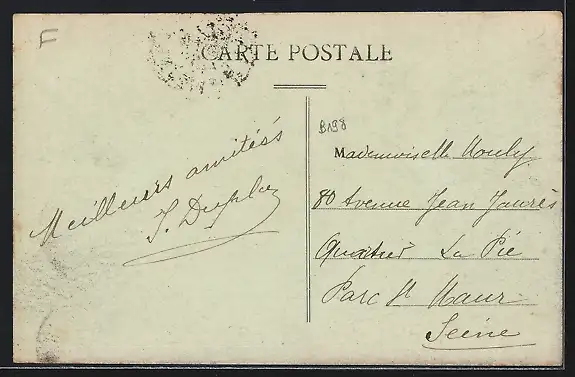 F
CARTE POSTALE
B198
Meilleurs amitiés
J. Duplay
Mademoiselle Mouly
80 Avenue Jean Jaurès
Quartier La Pie
Parc St Maur
Seine